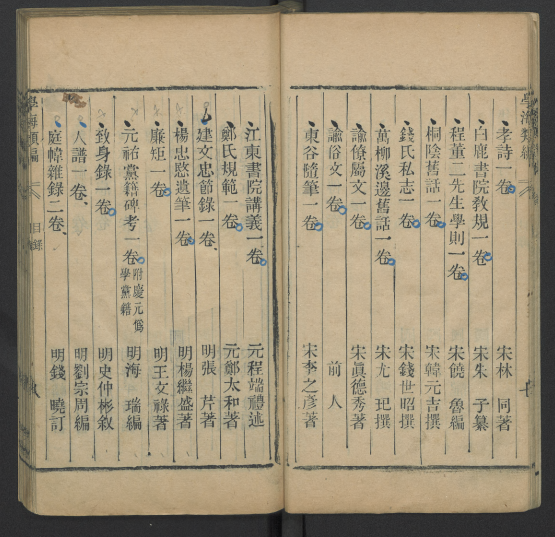 學海類編
孝詩一卷 宋林 同著
白鹿書院教規一卷 宋朱 子纂
程董二先生學則一卷 宋饒 魯編
桐陰舊話一卷 宋韓元吉撰
錢氏私志一卷 宋錢世昭撰
萬柳溪邊舊話一卷 宋尤 玘撰
諭僚屬文一卷 宋眞德秀著
諭俗文一卷 前 人
東谷隨筆一卷 宋李之彥著
江東書院講義一卷 元程端禮述
鄭氏規範一卷 元鄭太和著
建文忠節錄一卷 明張 芹著
楊忠愍遺筆一卷 明楊繼盛著
廉矩一卷 明王文祿著
元祐黨籍碑考一卷 附慶元僞學黨籍 明海 瑞編
致身錄一卷 明史仲彬敘
人譜一卷 明劉宗周編
庭幃雜錄二卷 明錢 曉訂
學海類編 目錄